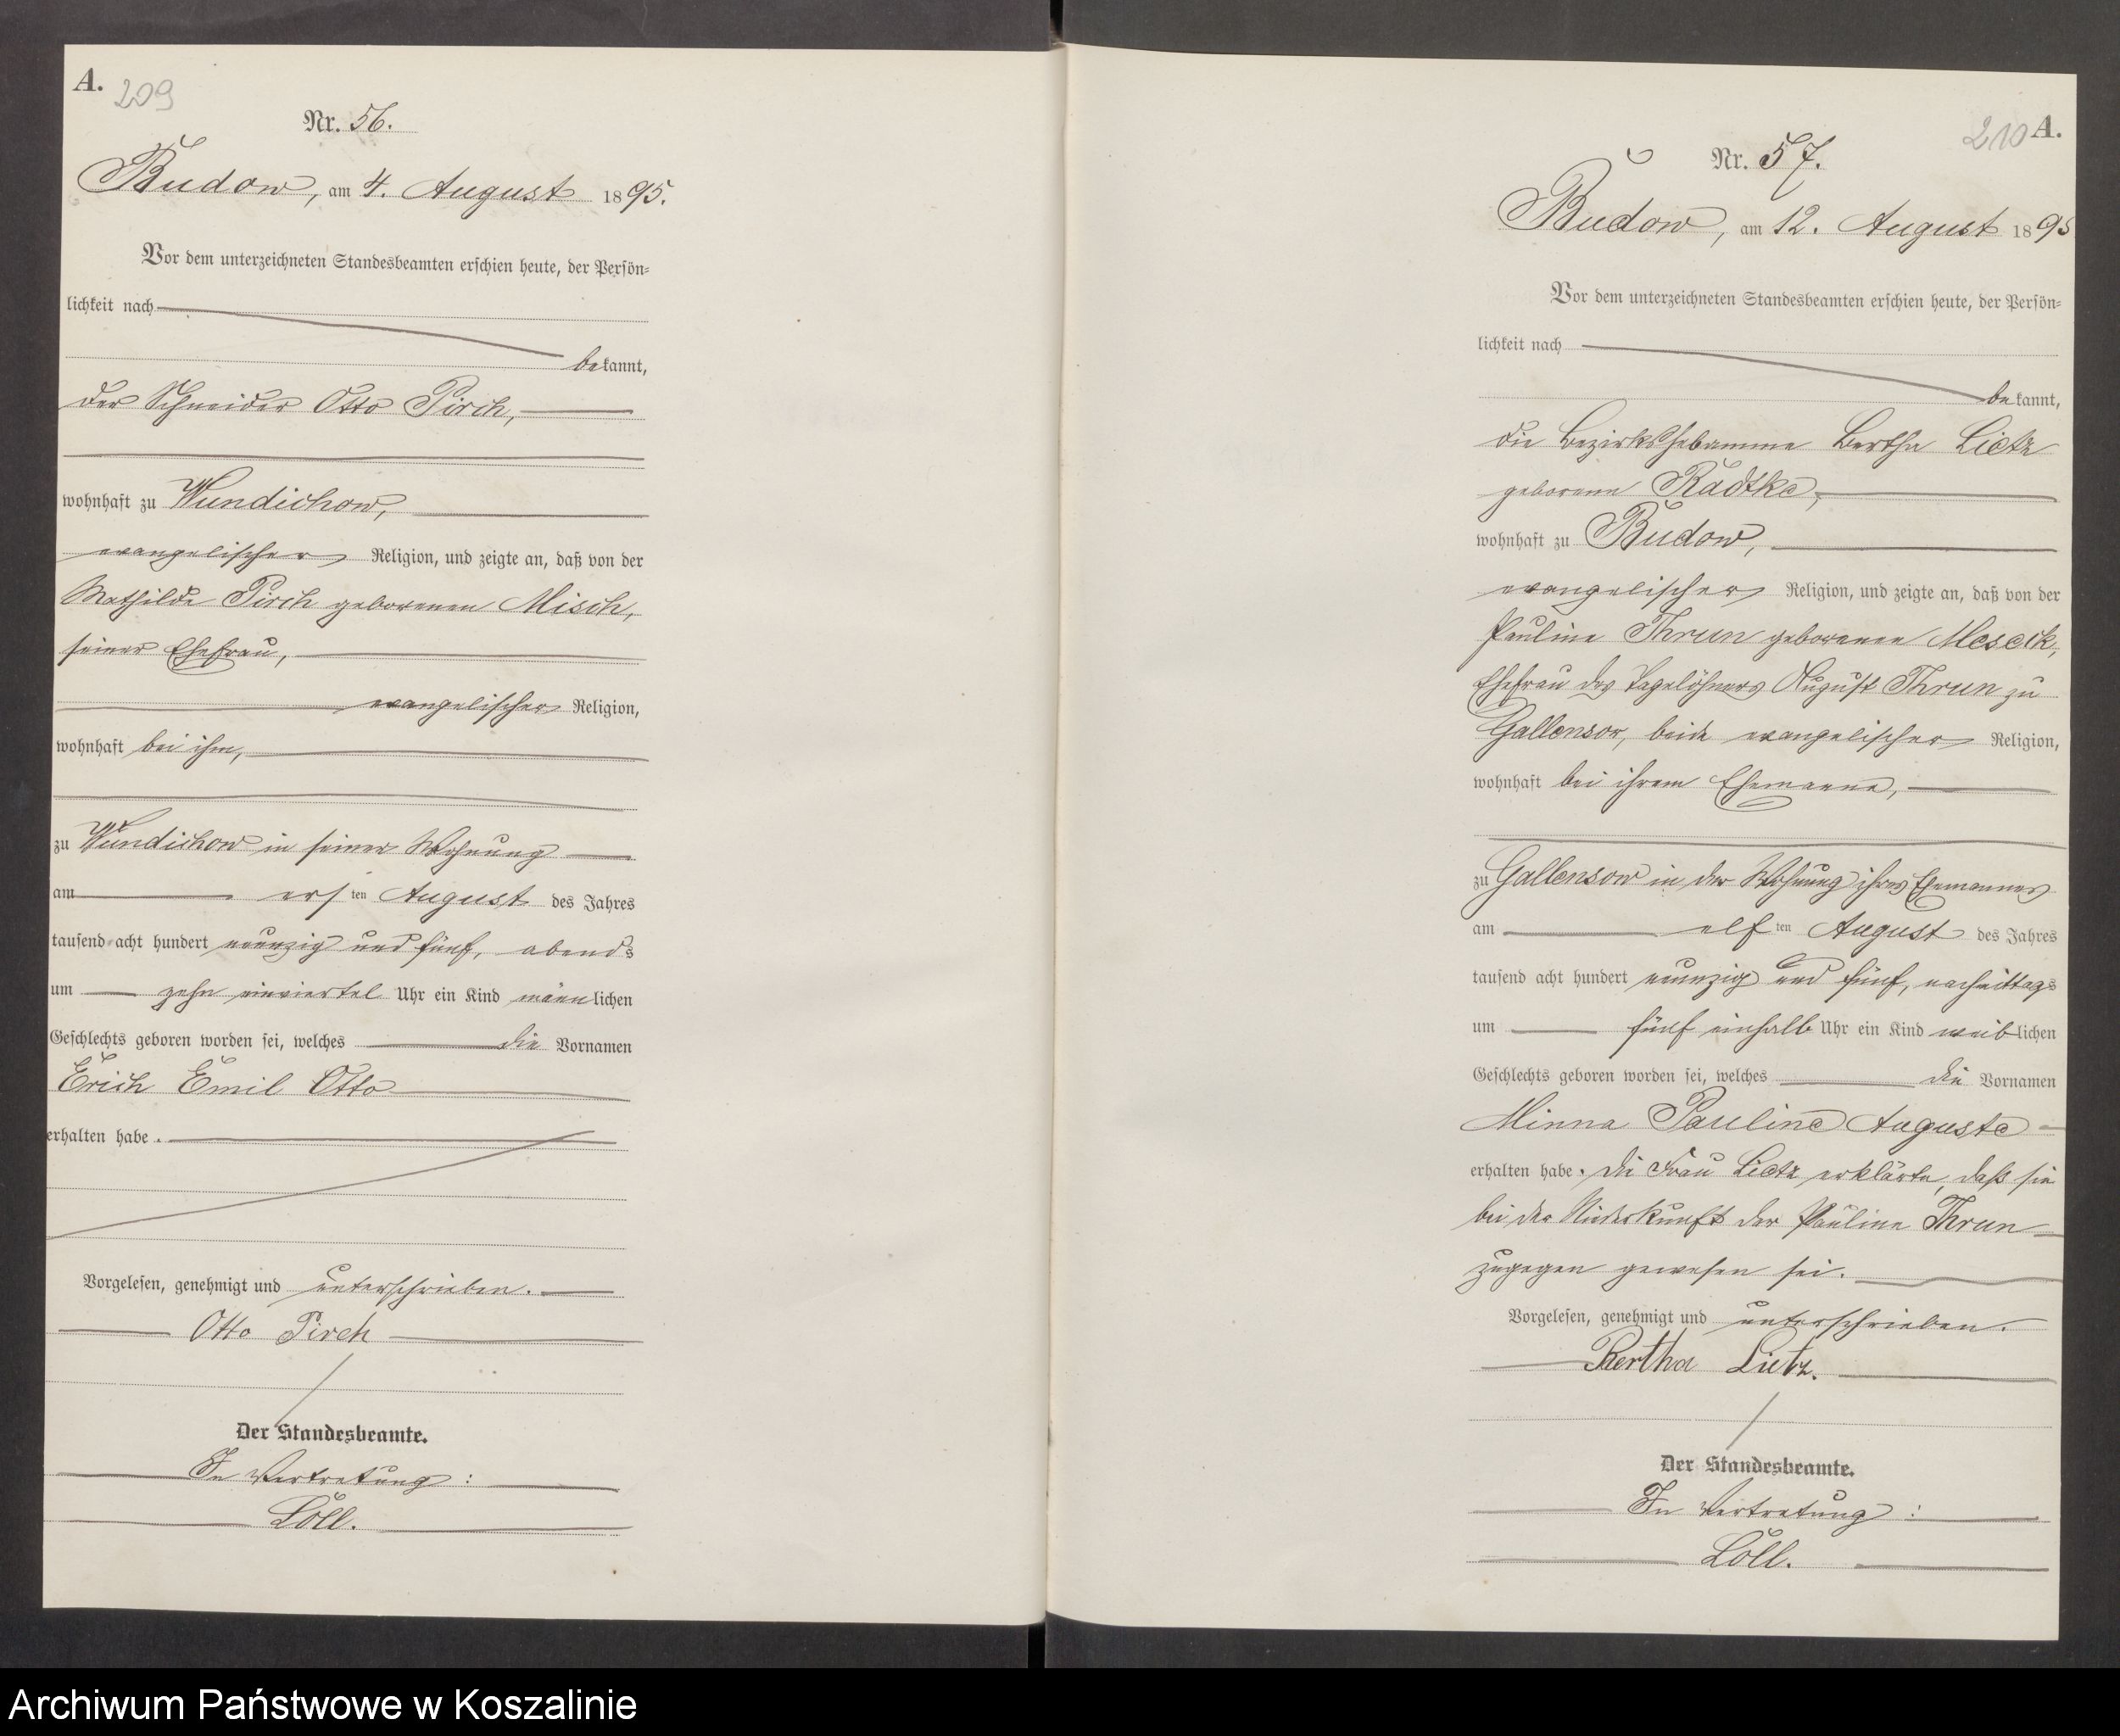 A.
209
Nr. 56.
Budow, am 4. August 1895.
Vor dem unterzeichneten Standesbeamten erschien heute, der Persön-
lichkeit nach
bekannt,
der Schneider Otto Pirch,
wohnhaft zu Wundichow,
evangelischer Religion, und zeigte an, daß von der
Mathilde Pirch geborenen Misch,
seiner Ehefrau,
evangelischer Religion,
wohnhaft bei ihm,
zu Wundichow in seiner Wohnung
am ersten August des Jahres
tausend acht hundert neunzig und fünf, abends
um zehn einviertel Uhr ein Kind männlichen
Geschlechts geboren worden sei, welches die Vornamen
Erich Emil Otto
erhalten habe.
Vorgelesen, genehmigt und unterschrieben.
Otto Pirch
Der Standesbeamte.
In Vertretung:
Löll.
210 A.
Nr. 57.
Budow, am 12. August 1895
Vor dem unterzeichneten Standesbeamten erschien heute, der Persön-
lichkeit nach
bekannt,
die Bezirkshebamme Bertha Lietz
geborene Radtke,
wohnhaft zu Budow,
evangelischer Religion, und zeigte an, daß von der
Pauline Thrun geborenen Meseck,
Ehefrau des Tagelöhners August Thrun zu
Gallensow, beide evangelischer Religion,
wohnhaft bei ihrem Ehemanne,
zu Gallensow in der Wohnung ihres Ehemannes
am elften August des Jahres
tausend acht hundert neunzig und fünf, nachmittags
um fünf einhalb Uhr ein Kind weiblichen
Geschlechts geboren worden sei, welches die Vornamen
Minna Pauline Auguste
erhalten habe. Die Frau Lietz erklärte, daß sie
bei der Niederkunft der Pauline Thrun
zugegen gewesen sei.
Vorgelesen, genehmigt und unterschrieben.
Bertha Lietz.
Der Standesbeamte.
In Vertretung:
Löll.
Archiwum Państwowe w Koszalinie